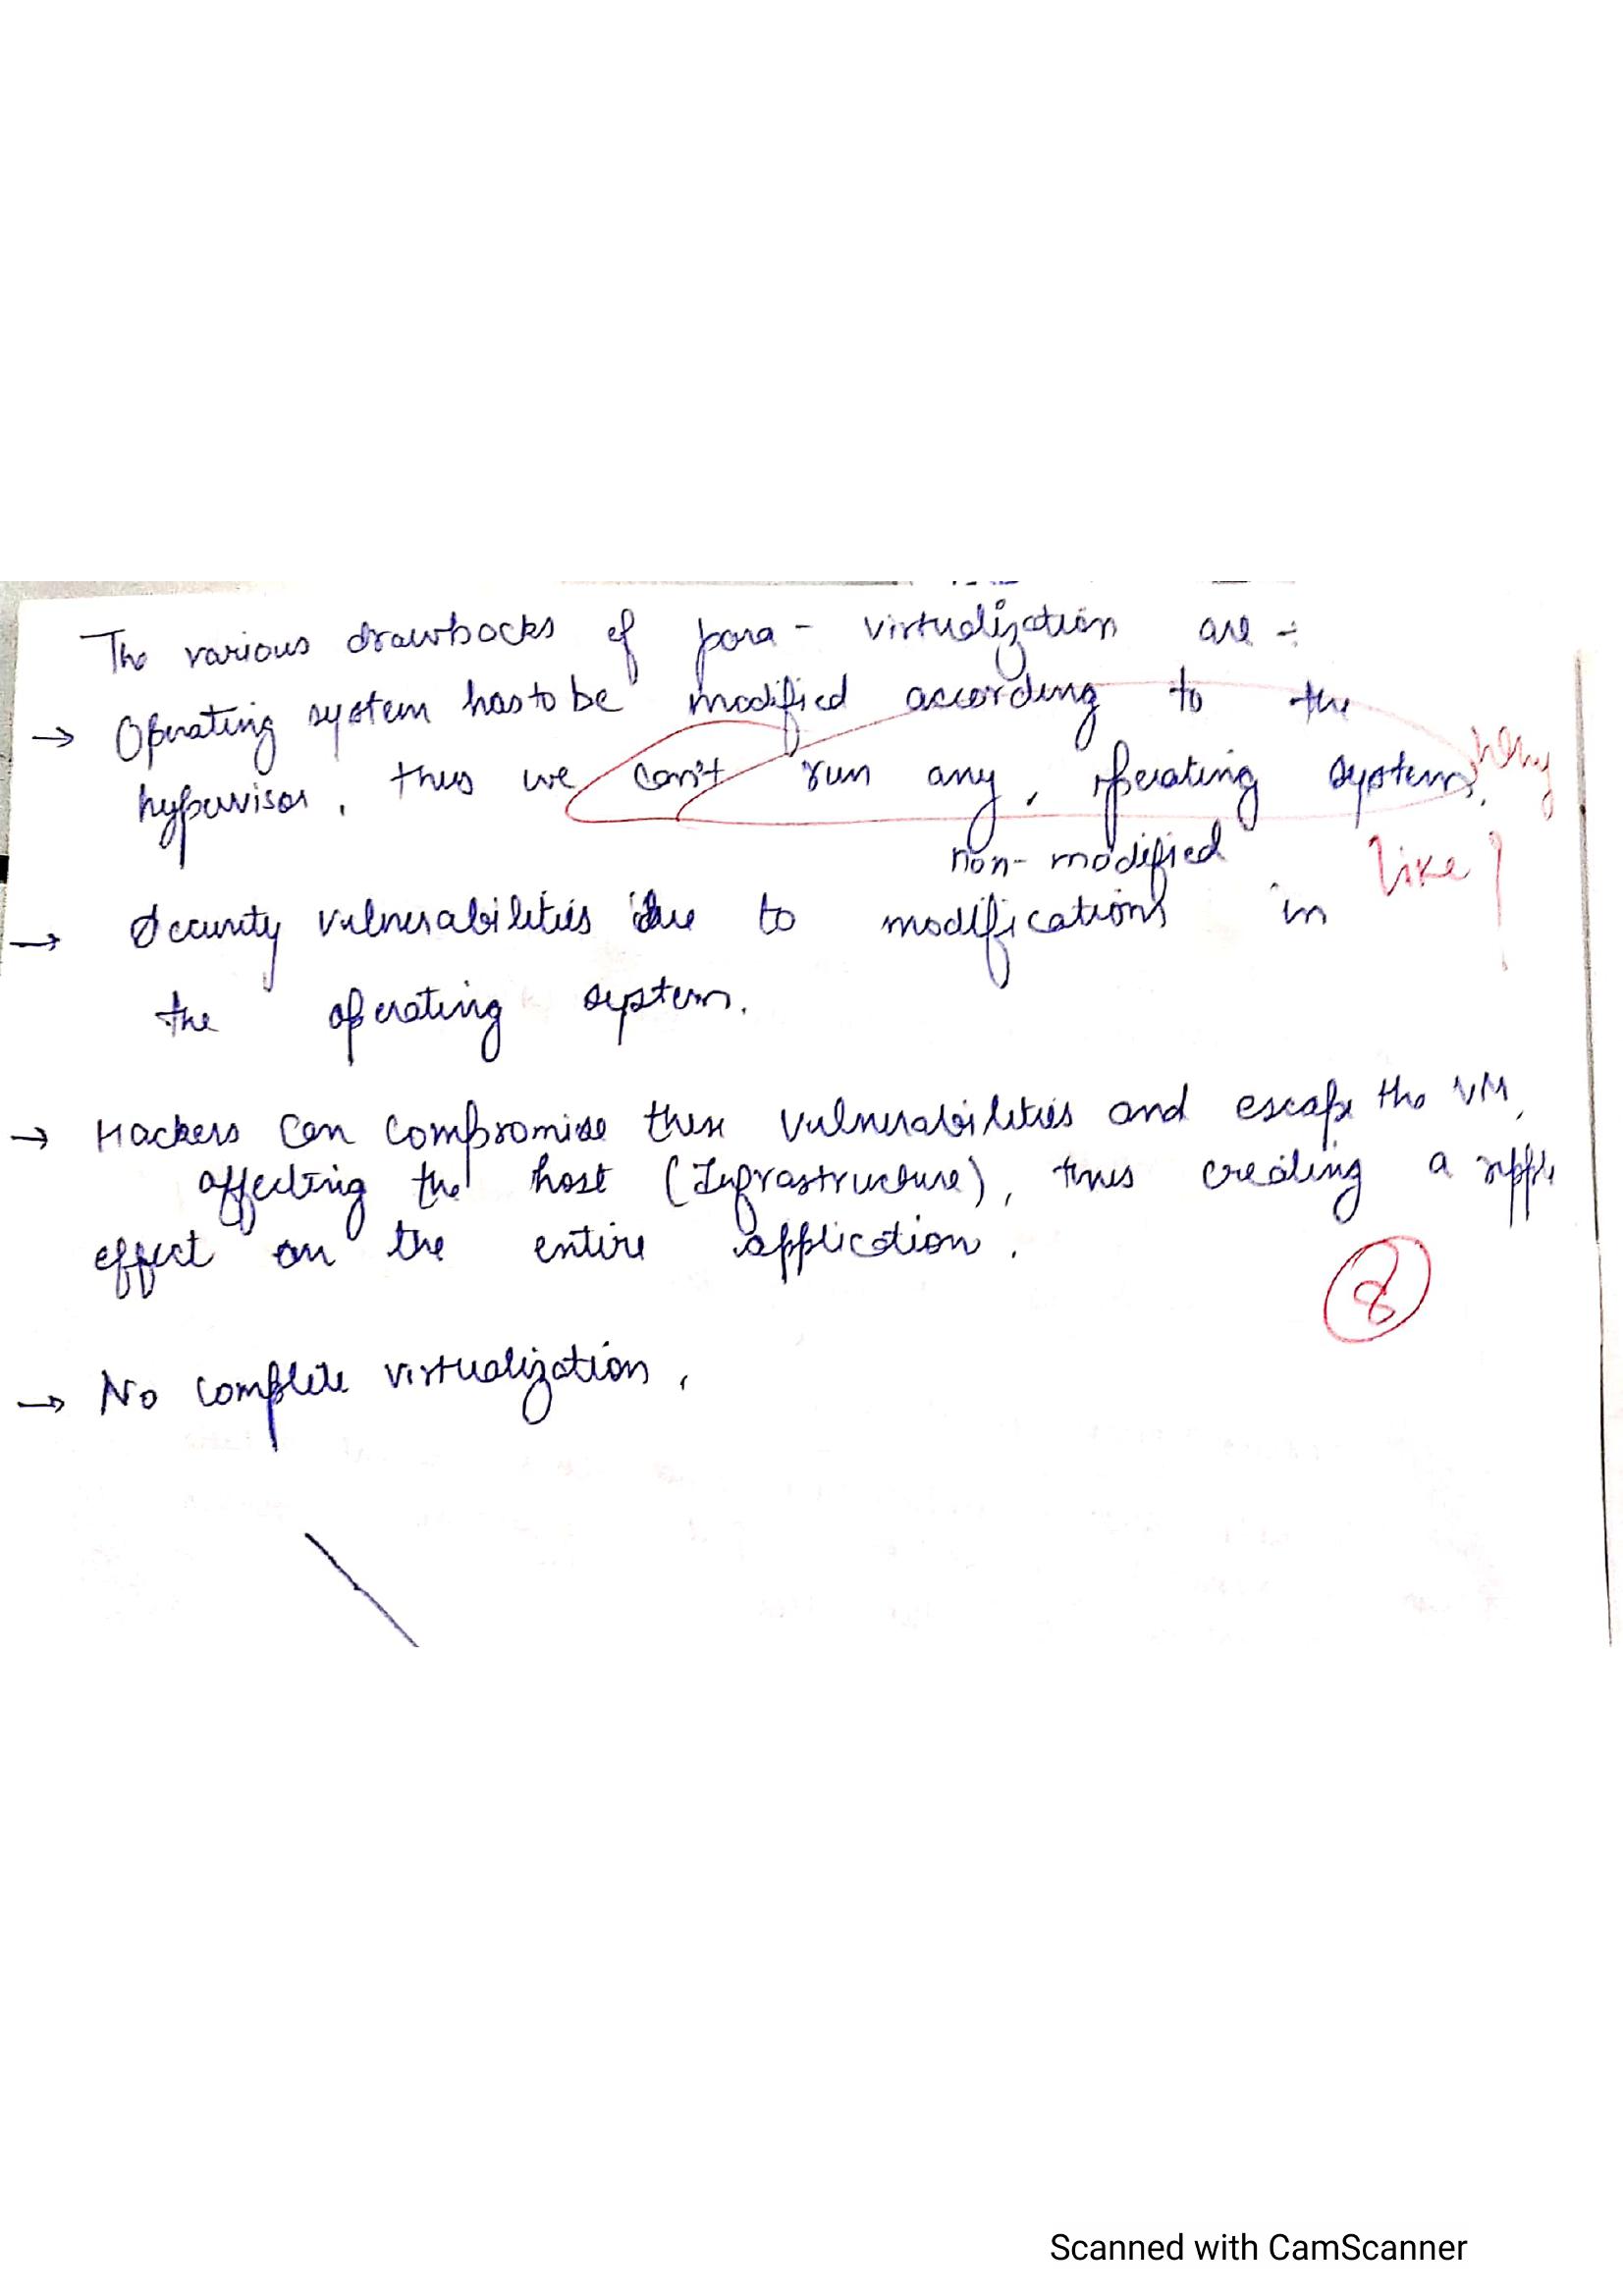 The various drawbacks of para - virtualization are :-
→ Operating system has to be modified according to the
hypervisor, thus we can't run any, operating system. Why
non-modified like ?
→ Security vulnerabilities due to modifications in
the operating system.
→ Hackers can compromise these vulnerabilities and escape the VM,
affecting the host (Infrastructure), thus creating a ripple
effect on the entire application.
8
→ No complete virtualization.
Scanned with CamScanner